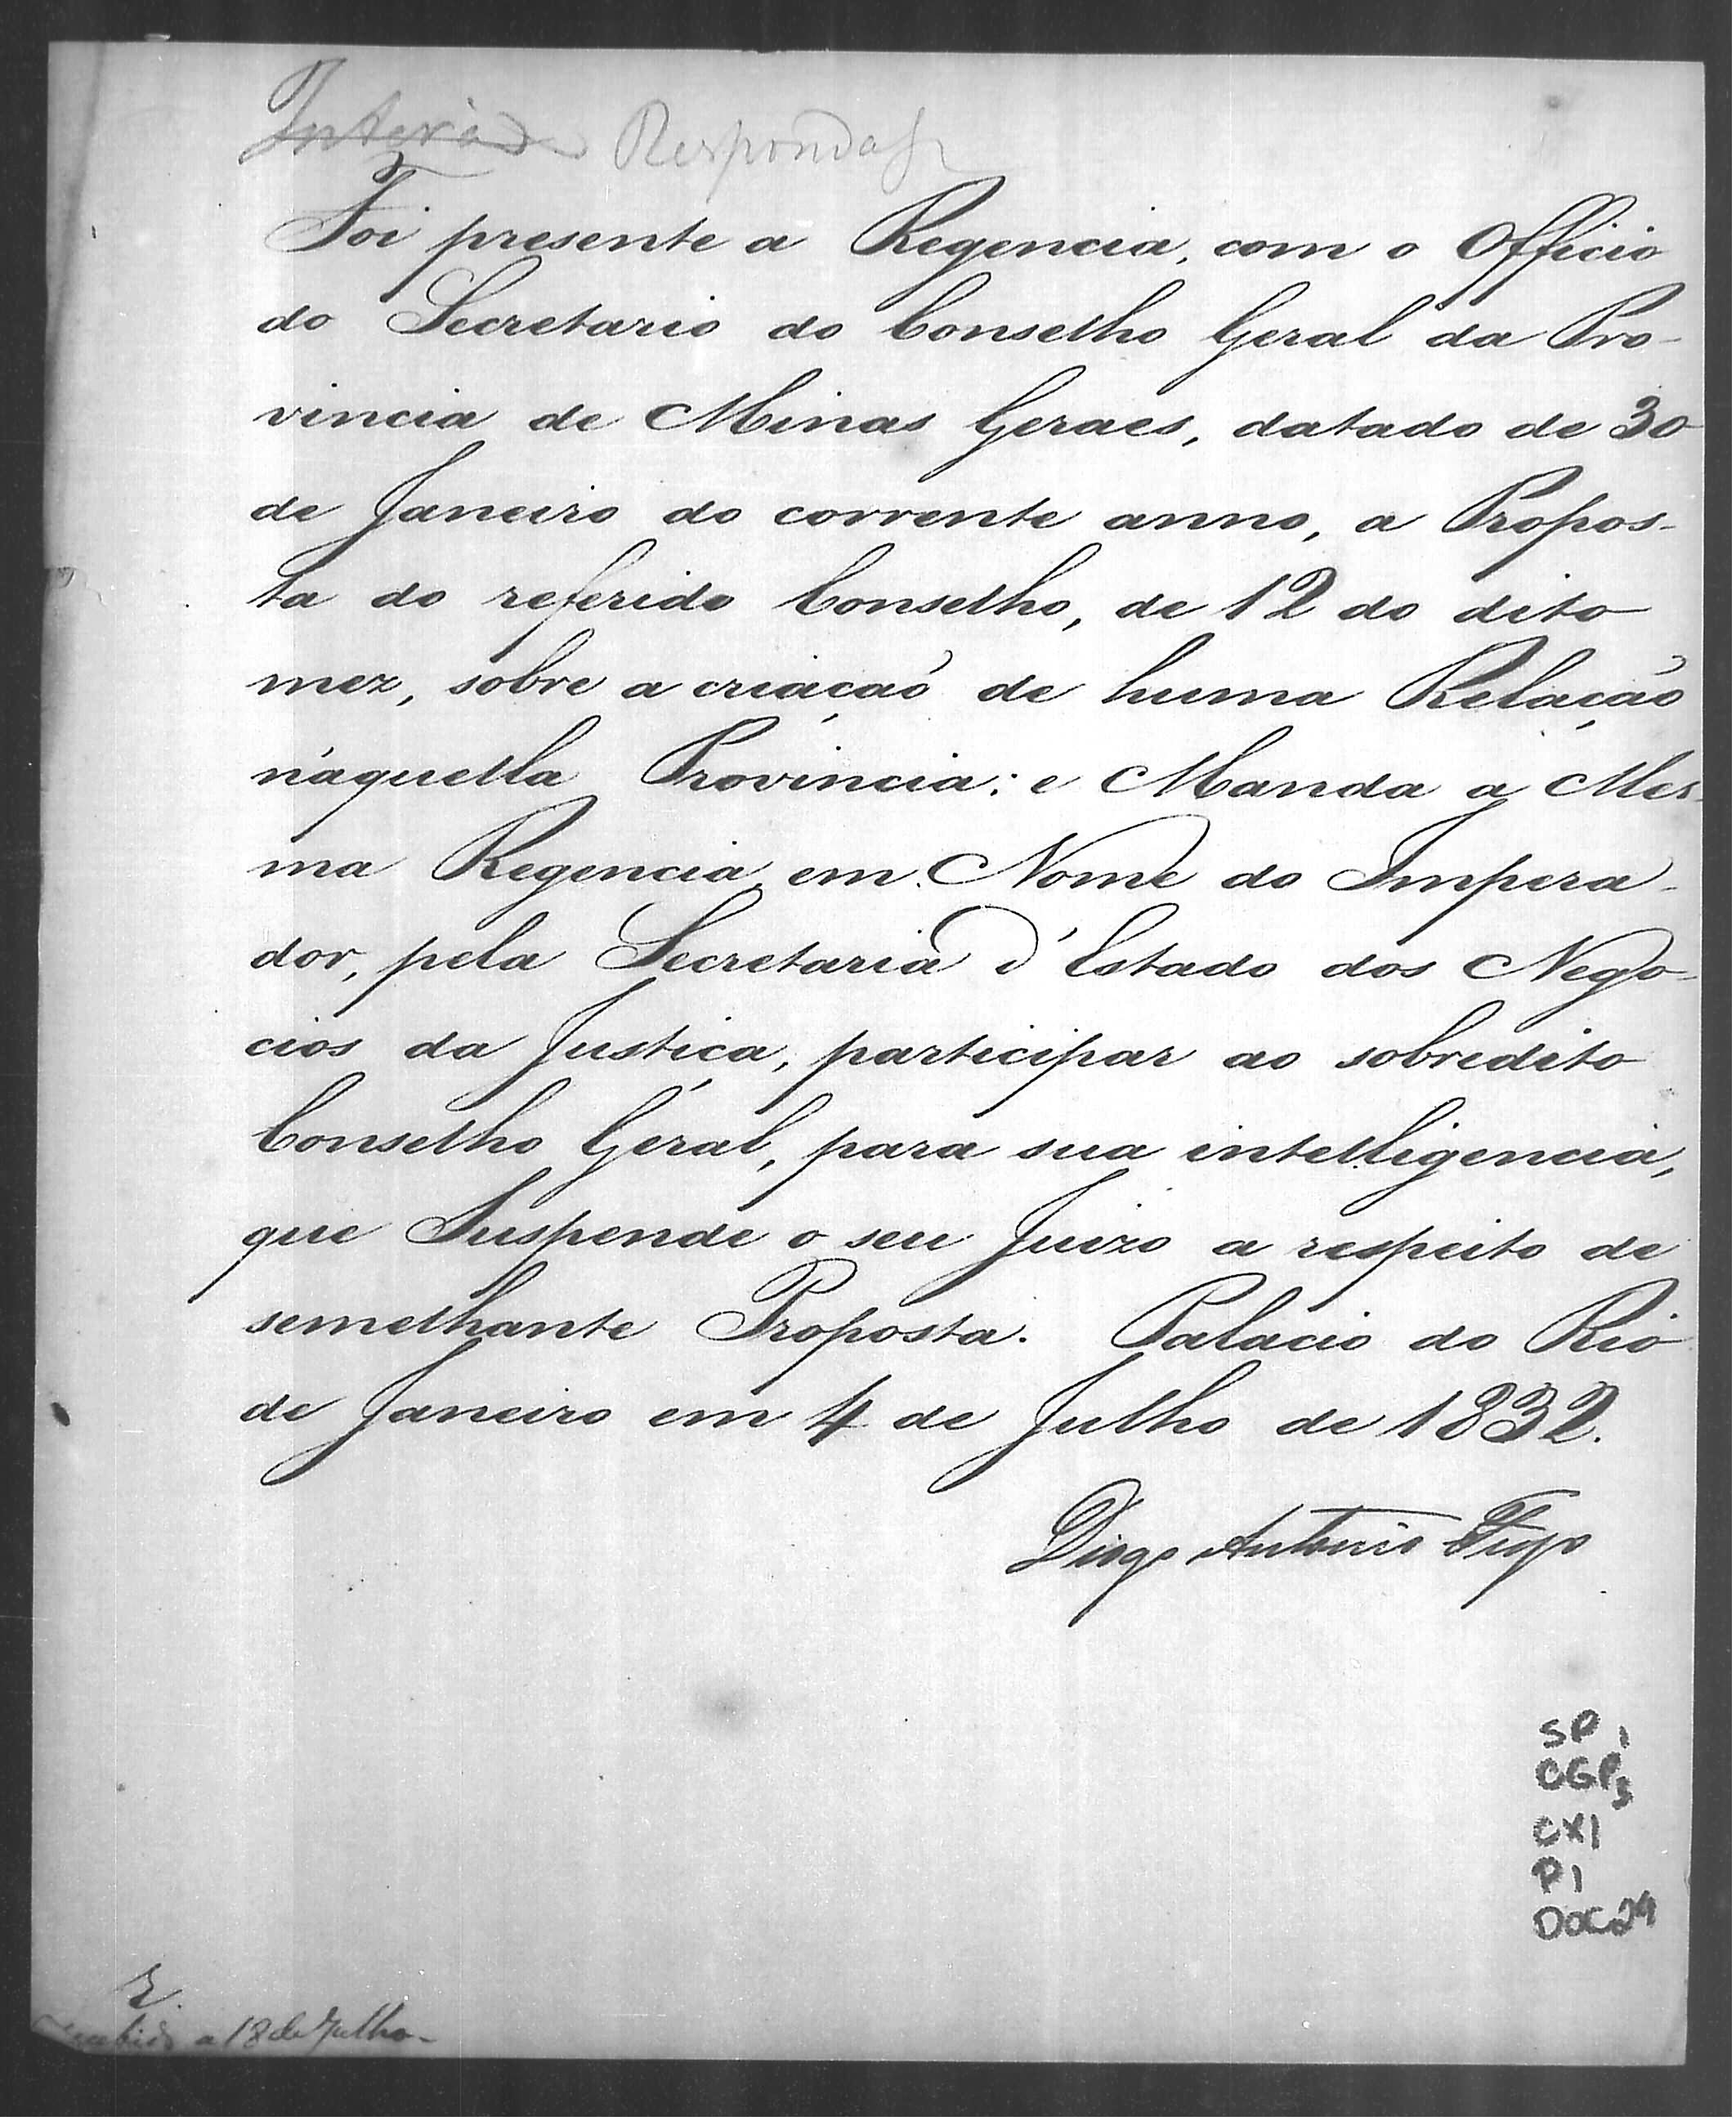 Inteirado Respondase
Foi presente a Regencia, com o Officio
do Secretario do Conselho Geral da Pro-
vincia de Minas Geraes, datado de 30
de Janeiro do corrente anno, a Propos-
ta do referido Conselho, de 12 do dito
mez, sobre a criaçaõ de huma Relaçaõ
n'aquella Provincia: e Manda a Mes-
ma Regencia, em Nome do Impera-
dor, pela Secretaria d'Estado dos Nego-
cios da Justiça, participar ao sobredito
Conselho Geral, para sua intelligencia,
que Suspende o seu Juizo a respeito de
semelhante Proposta. Palacio do Rio
de Janeiro em 4 de Julho de 1832.
Diogo Antonio Feijo
SP
CGP3
CX1
P1
DOC29
a 18 de Julho-